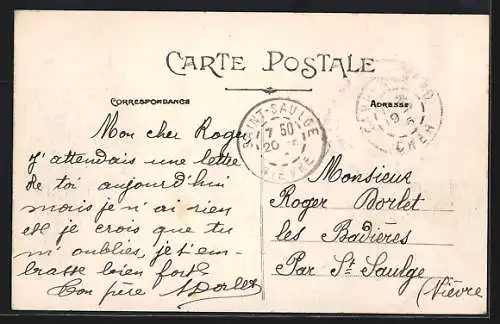 CARTE POSTALE
CORRESPONDANCE
ADRESSE
SAINT-SAULGE
7 50
20
NIEVRE
CHER
Mon cher Roger
J'attendais une lettre
de toi aujourd'hui
mais je n'ai rien
et je crois que tu
m'oublies, je t'em-
brasse bien fort
Ton père
Monsieur
Roger Dorlet
les Badières
Par St Saulge
(Nièvre